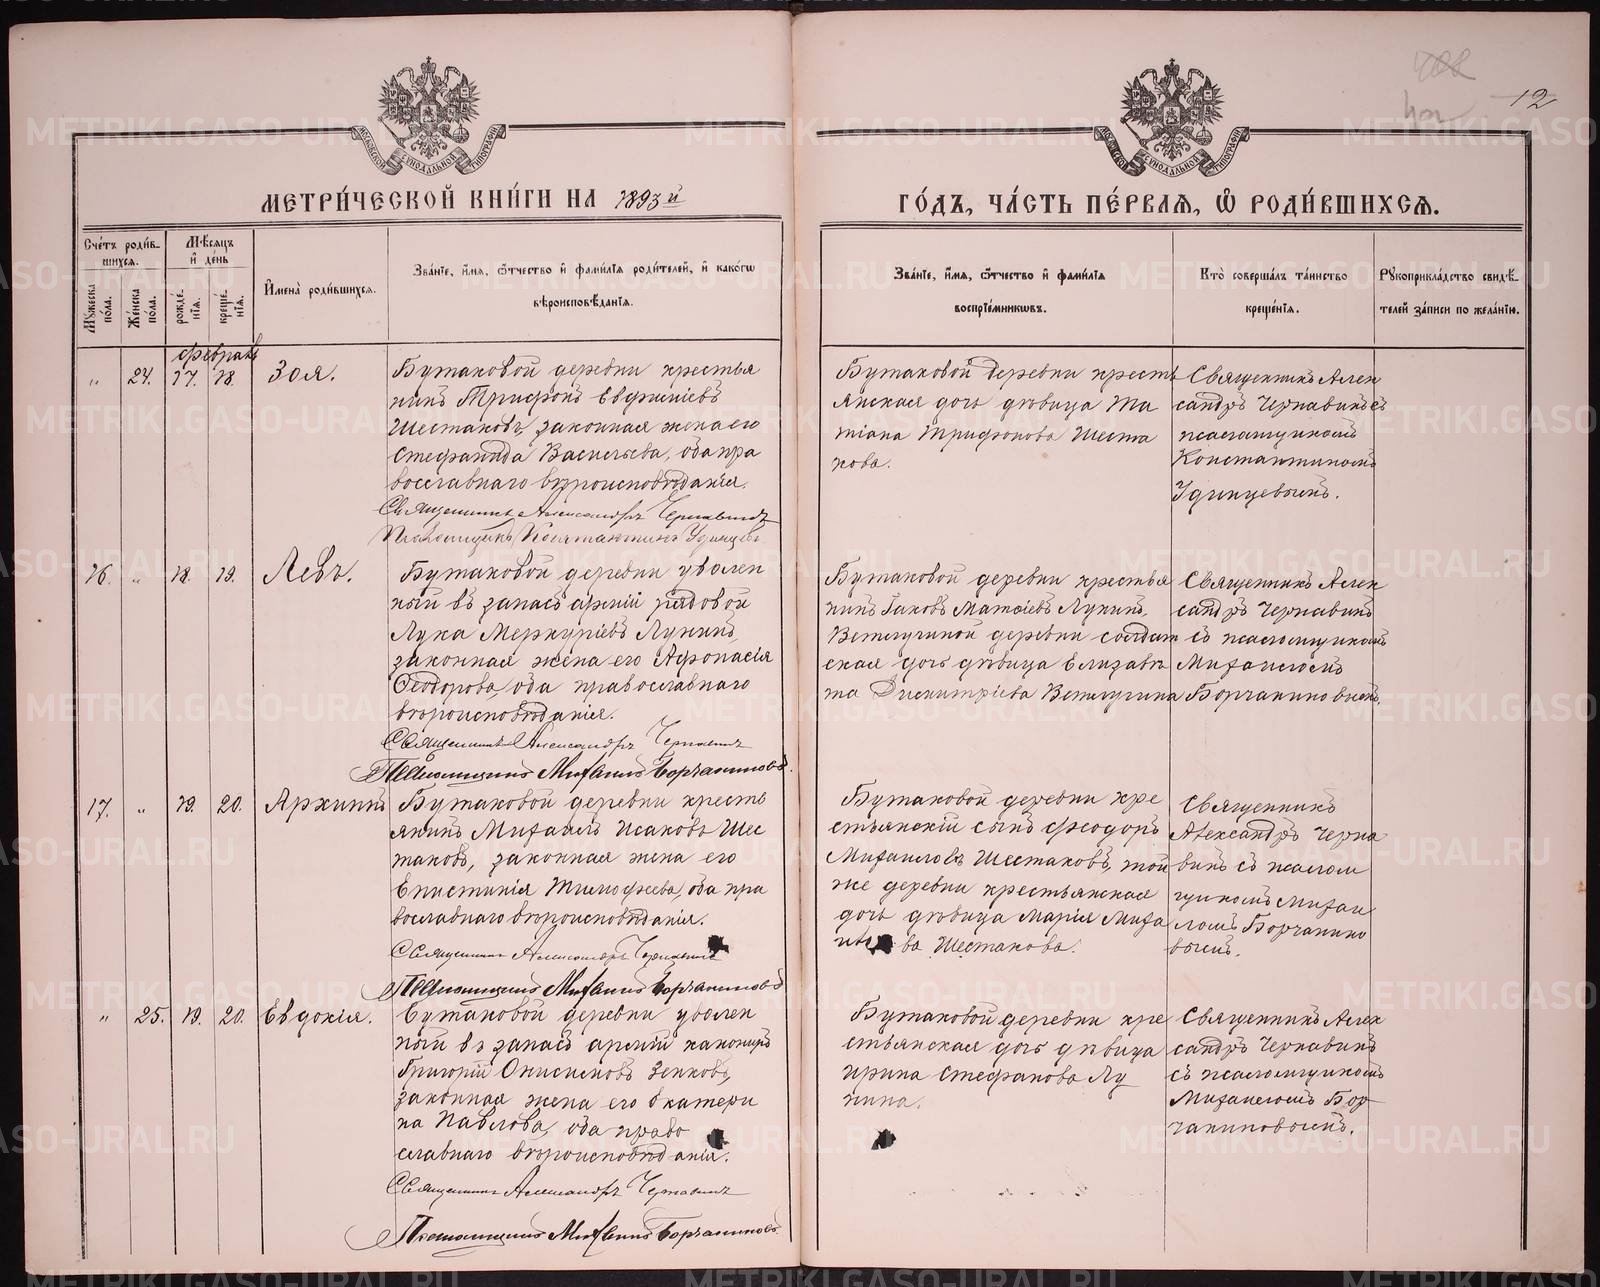 МЕТРИ́ЧЕСКОЙ КНИ́ГИ НА 1893й
ГО́ДЪ, ЧА́СТЬ ПЕ́РВАЯ, Ѡ РОДИ́ВШИХСЯ.
МОСКОВСКОЙ СѴНОДАЛЬНОЙ ТИПОГРАФІИ
МОСКОВСКОЙ СѴНОДАЛЬНОЙ ТИПОГРАФІИ
12
Сче́тъ роди́в-
шихся.
Мꙋ́жеска пола.
Же́нска пола.
Мѣ́сяцъ
и҆ де́нь
рожде́-
нїя.
креще́-
нїя.
И҆мена̀ роди́вшихся.
Зва́нїе, и҆́мя, ѻ҆́тчество и҆ фами́лїя роди́телей, и҆ како́гѡ
вѣроисповѣ́данїя.
Зва́нїе, и҆́мя, ѻ҆́тчество и҆ фами́лїя
воспрїе́мникѡвъ.
Кто̀ соверша́лъ та́инство
креще́нїя.
Рꙋкоприкла́дство свидѣ́-
телей за́писи по жела́нїю.
февраль
„ 24. 17. 18. Зоя.
Бутаковой деревни крестья
нинъ Трифонъ Евфиміевъ
Шестаковъ, законная жена его
Стефанида Васильева, оба пра
вославнаго вѣроисповѣданія.
Священникъ Александръ Чернавинъ
Псаломщикъ Константинъ Удинцевъ
Бутаковой деревни кресть
янская дочь дѣвица Та
тіана Трифонова Шеста
кова.
Священникъ Алек
сандръ Чернавинъ съ
псаломщикомъ
Константиномъ
Удинцевымъ.
16. „ 18. 19. Левъ.
Бутаковой деревни уволен
ный въ запасъ арміи рядовой
Лука Меркуріевъ Лунинъ,
законная жена его Афонасія
Ѳеодорова, оба православнаго
вѣроисповѣданія.
Священникъ Александръ Чернавинъ
Псаломщикъ Михаилъ Борчаниновъ.
Бутаковой деревни крестья
нинъ Іаковъ Матѳіевъ Лунинъ,
Ветлугиной деревни солдат
ская дочь дѣвица Елизаве
та Димитріева Ветлугина
Священникъ Алек
сандръ Чернавинъ
съ псаломщикомъ
Михаиломъ
Борчаниновымъ.
17. „ 19. 20. Архиппъ
Бутаковой деревни кресть
янинъ Михаилъ Исаковъ Шес
таковъ, законная жена его
Епистимія Тимофеева, оба пра
вославнаго вѣроисповѣданія.
Священникъ Александръ Чернавинъ
Псаломщикъ Михаилъ Борчаниновъ
Бутаковой деревни кре
стьянскій сынъ Феодоръ
Михаиловъ Шестаковъ, той
же деревни крестьянская
дочь дѣвица Марія Миха
илова Шестакова.
Священникъ
Александръ Черна
винъ съ псалом
щикомъ Михаи
ломъ Борчанино
вымъ.
„ 25. 19. 20. Евдокія.
Бутаковой деревни уволен
ный въ запасъ арміи канониръ
Григорій Онисимовъ Зенковъ,
законная жена его Екатери
на Павлова, оба право
славнаго вѣроисповѣданія.
Священникъ Александръ Чернавинъ
Псаломщикъ Михаилъ Борчаниновъ
Бутаковой деревни кре
стьянская дочь дѣвица
Ирина Стефанова Лу
нина.
Священникъ Алек
сандръ Чернавинъ
съ псаломщикомъ
Михаиломъ Бор
чаниновымъ.
METRIKI.GASO-URAL.RU